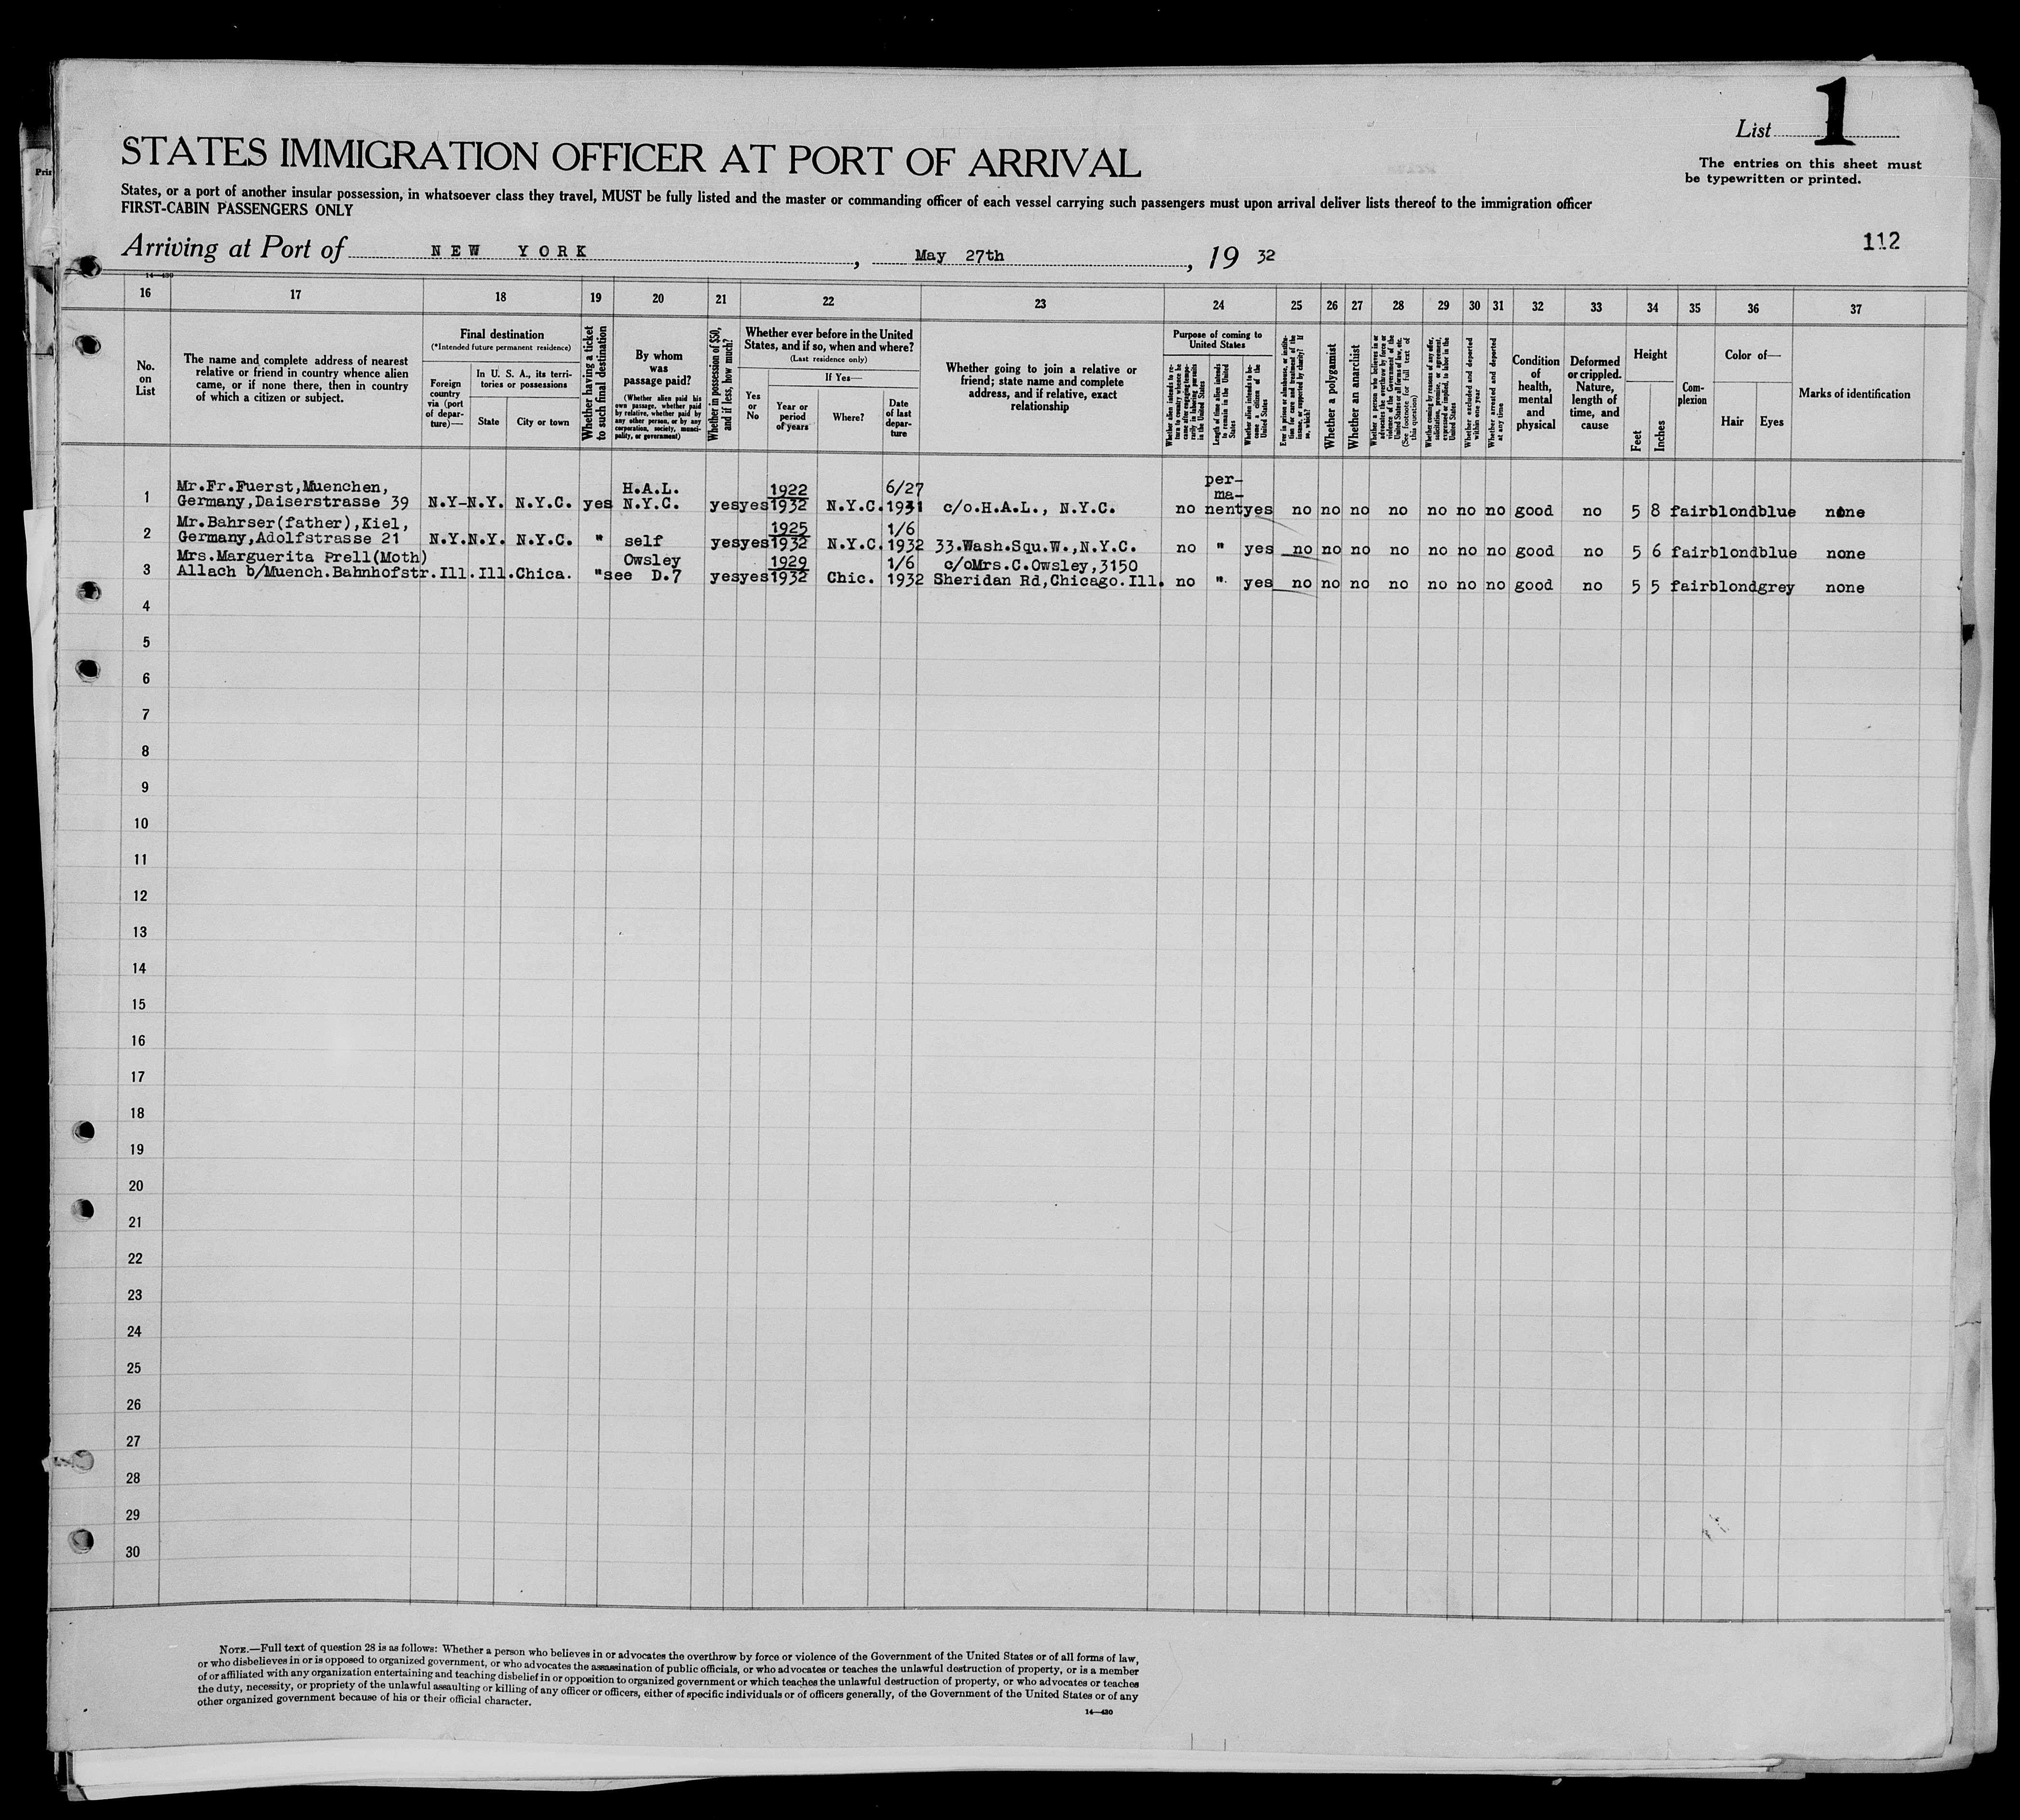 List 1
STATES IMMIGRATION OFFICER AT PORT OF ARRIVAL
The entries on this sheet must
be typewritten or printed.
States, or a port of another insular possession, in whatsoever class they travel, MUST be fully listed and the master or commanding officer of each vessel carrying such passengers must upon arrival deliver lists thereof to the immigration officer
FIRST-CABIN PASSENGERS ONLY
112
Arriving at Port of NEW YORK, May 27th, 19 32
14—430
16 17 18 19 20 21 22 23 24 25 26 27 28 29 30 31 32 33 34 35 36 37
No. on List
The name and complete address of nearest relative or friend in country whence alien came, or if none there, then in country of which a citizen or subject.
Final destination
(*Intended future permanent residence)
Foreign country via (port of departure)—
In U. S. A., its territories or possessions
State
City or town
Whether having a ticket to such final destination
By whom was passage paid?
(Whether alien paid his own passage, whether paid by relative, whether paid by any other person, or by any corporation, society, municipality, or government)
Whether in possession of $50, and if less, how much?
Whether ever before in the United States, and if so, when and where?
(Last residence only)
Yes or No
If Yes—
Year or period of years
Where?
Date of last departure
Whether going to join a relative or friend; state name and complete address, and if relative, exact relationship
Purpose of coming to United States
Length of time alien intends to remain in the United States
Whether alien intends to become a citizen of the United States
Whether a polygamist
Whether an anarchist
Whether excluded and deported within one year
Whether arrested and deported at any time
Condition of health, mental and physical
Deformed or crippled. Nature, length of time, and cause
Height
Feet
Inches
Complexion
Color of—
Hair
Eyes
Marks of identification
1 Mr.Fr.Fuerst,Muenchen, H.A.L. 1922 6/27 per-ma-
Germany,Daiserstrasse 39 N.Y-N.Y. N.Y.C. yes N.Y.C. yes yes 1932 N.Y.C. 1931 c/o.H.A.L., N.Y.C. no nent yes no no no no no no no good no 5 8 fair blond blue none
2 Mr.Bahrser(father),Kiel, 1925 1/6
Germany,Adolfstrasse 21 N.Y.N.Y. N.Y.C. " self yes yes 1932 N.Y.C. 1932 33.Wash.Squ.W.,N.Y.C. no " yes no no no no no no no good no 5 6 fair blond blue none
3 Mrs.Marguerita Prell(Moth) Owsley 1929 1/6 c/oMrs.C.Owsley,3150
Allach b/Muench.Bahnhofstr.Ill.Ill.Chica. " see D.7 yes yes 1932 Chic. 1932 Sheridan Rd,Chicago.Ill. no " yes no no no no no no no good no 5 5 fair blond grey none
4
5
6
7
8
9
10
11
12
13
14
15
16
17
18
19
20
21
22
23
24
25
26
27
28
29
30
NOTE.—Full text of question 28 is as follows: Whether a person who believes in or advocates the overthrow by force or violence of the Government of the United States or of all forms of law,
or who disbelieves in or is opposed to organized government, or who advocates the assassination of public officials, or who advocates or teaches the unlawful destruction of property, or is a member
of or affiliated with any organization entertaining and teaching disbelief in or opposition to organized government or which teaches the unlawful destruction of property, or who advocates or teaches
the duty, necessity, or propriety of the unlawful assaulting or killing of any officer or officers, either of specific individuals or of officers generally, of the Government of the United States or of any
other organized government because of his or their official character.
14—430